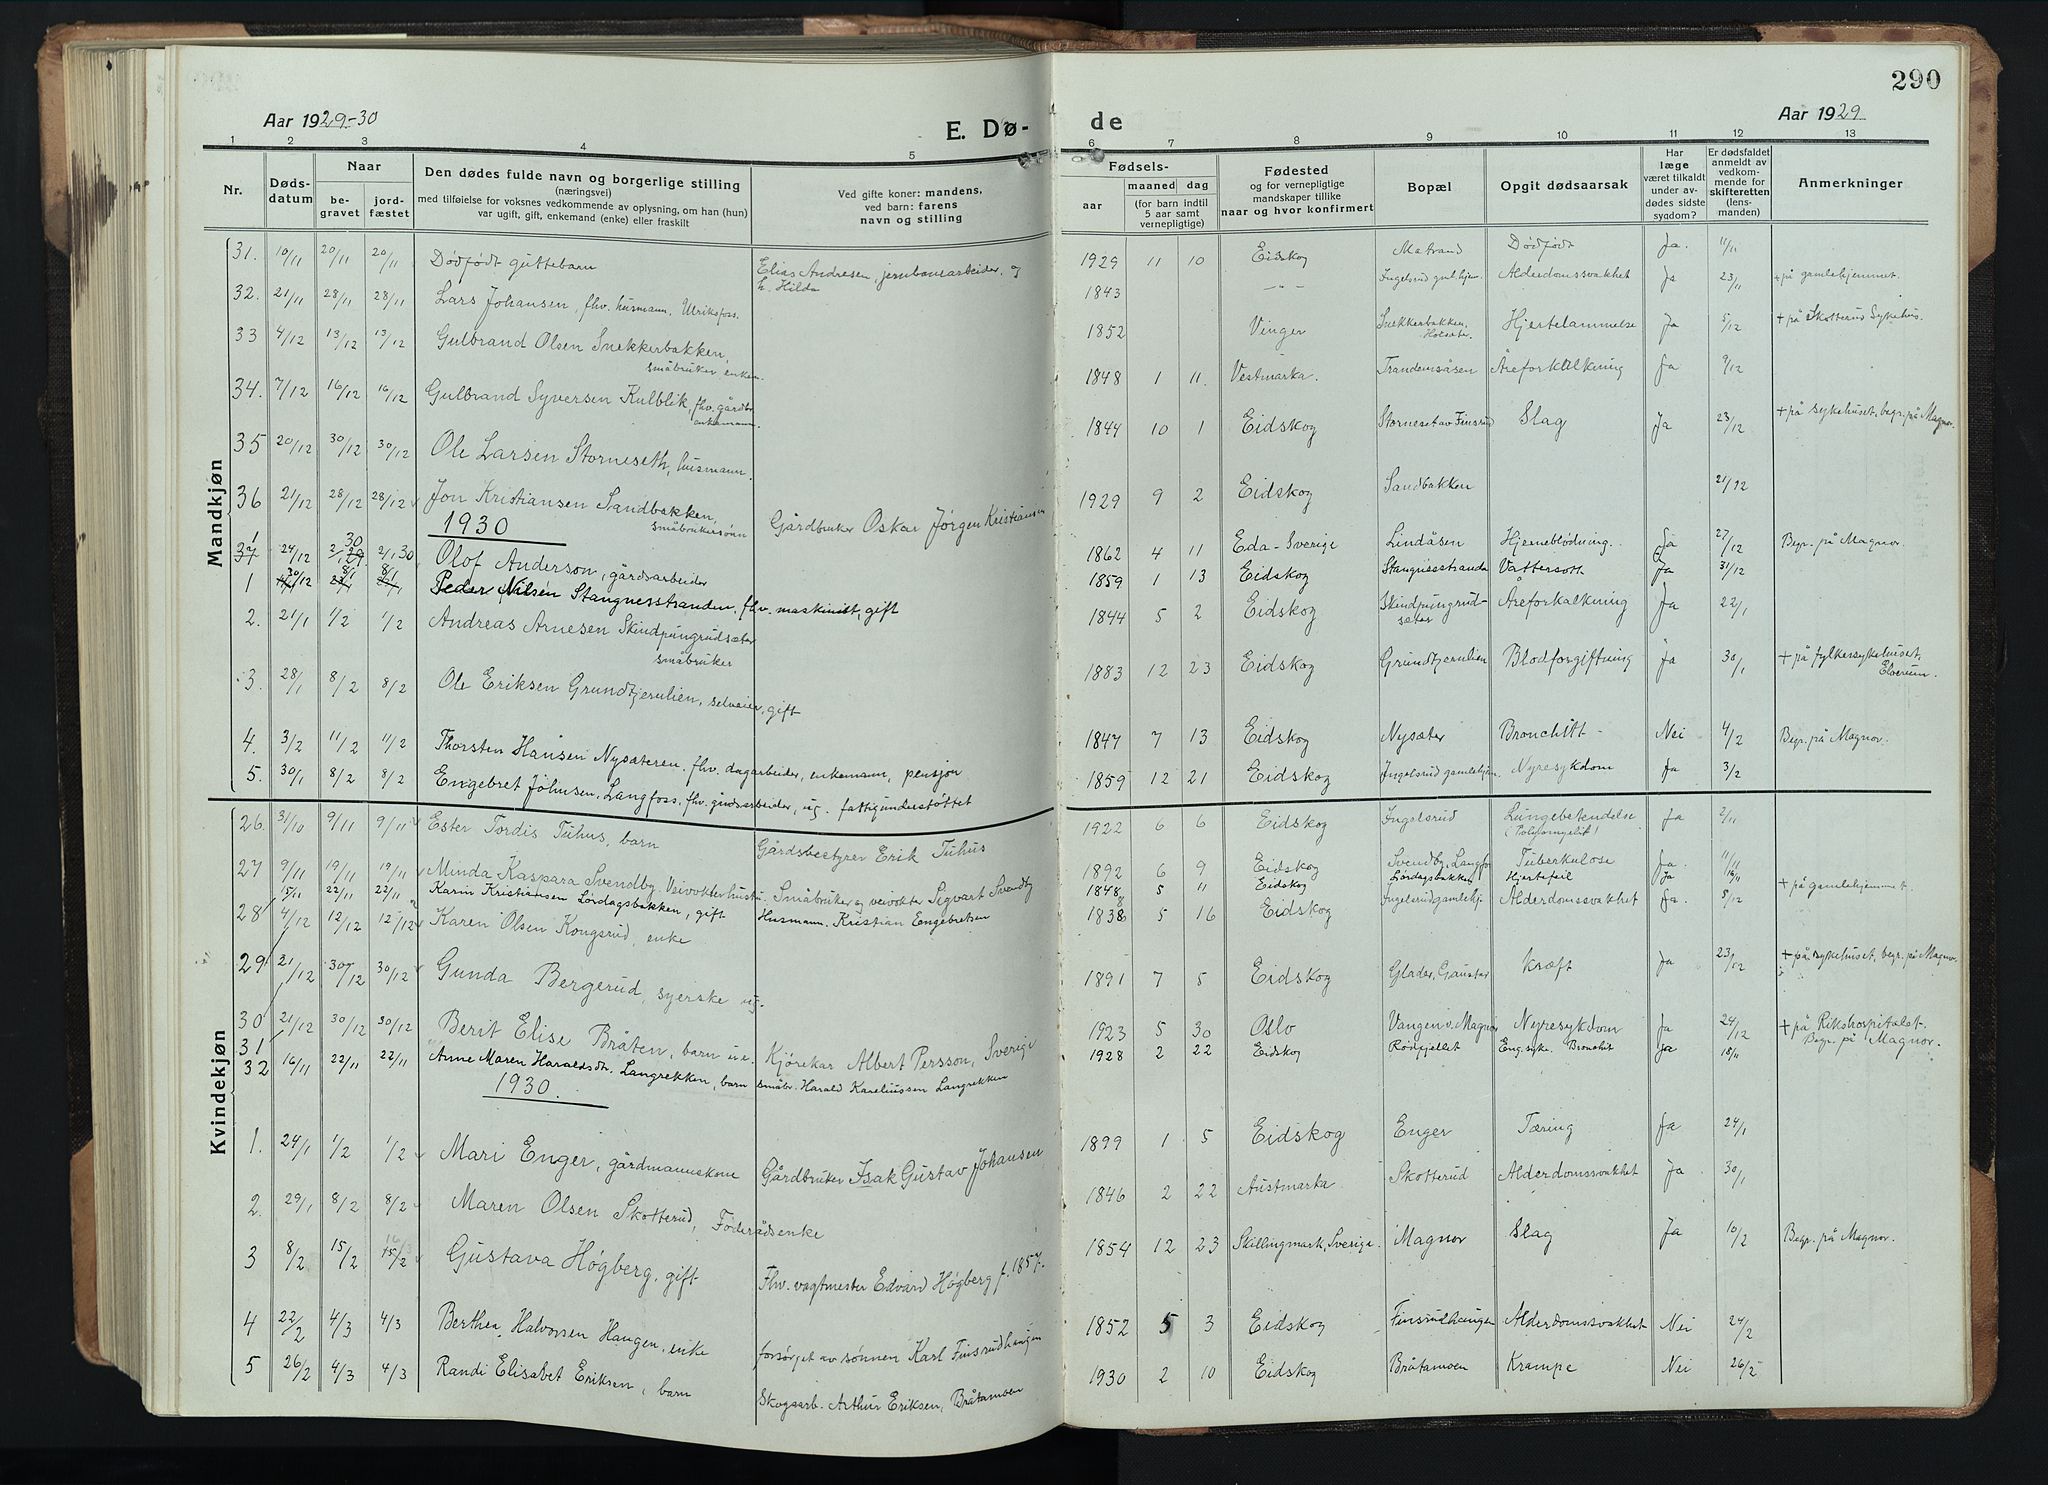 290
Aar 1929-30
E. Dø-
de
Aar 1929
1 2 3 4 5 6 7 8 9 10 11 12 13
Nr.
Døds-
datum
Naar
be-
gravet
jord-
fæstet
Den dødes fulde navn og borgerlige stilling
(næringsvei)
med tilføielse for voksnes vedkommende av oplysning, om han (hun)
var ugift, gift, enkemand (enke) eller fraskilt
Ved gifte koner: mandens,
ved barn: farens
navn og stilling
Fødsels-
aar
maaned
dag
(for barn indtil
5 aar samt
vernepligtige)
Fødested
og for vernepligtige
mandskaper tillike
naar og hvor konfirmert
Bopæl
Opgit dødsaarsak
Har
læge
været tilkaldt
under av-
dødes sidste
sygdom?
Er dødsfaldet
anmeldt av
vedkom-
mende for
skifteretten
(lens-
manden)
Anmerkninger
Mandkjøn
31. 10/11 20/11 20/11 Dødfødt guttebarn Elias Andresen, jernbanearbeider, og h. Hilda 1929 11 10 Eidskog Matrand Dødfødt Ja. 11/11
32. 21/11 28/11 28/11 Lars Johansen, fhv. husmann, Ulriksfoss. 1843 -"- Ingelsrud gml.hjem. Alderdomssvakhet Ja 23/11 + på gamlehjemmet.
33 4/12 13/12 13/12 Gulbrand Olsen Snekkerbakken, småbruker, enkem. 1852 Vinger Snekkerbakken, Ja Hjertelammelse 5/12 + på Skotterud Sykehus.
34. 7/12 16/12 16/12 Gulbrand Syversen Kulblik, fhv. gårdbr. enkemann. 1848 1 11. Vestmarka. Trandemsåsen Åreforkalkning Ja 9/12
35 20/12 30/12 30/12 Ole Larsen Storneseth, husmann. 1844 10 1 Eidskog Storneset av Finsrud Slag Ja 23/12 + på sykehuset, begr. på Magnor.
36 21/12 28/12 28/12 Jon Kristiansen Sandbakken, småbrukersønn Gårdbruker Oskar Jørgen Kristiansen 1929 9 2 Eidskog Sandbakken 21/12
1930
37 1 24/12 2/1 30 2/1 30 Olof Anderson, gårdsarbeider 1862 4 11 Eda - Sverige Lindåsen Hjerneblødning. Ja 27/12 Begr. på Magnor.
1 30/12 8/1 8/1 Peder Nilsen Stangnesstranden, fhv. maskinist, gift 1859 1 13 Eidskog Stangnesstranda Vattersott Ja 31/12
2. 21/1 1/2 1/2 Andreas Arnesen Skindpungrudsæter småbruker 1844 5 2 Eidskog Skindpungrud-sæter Åreforkalkning Ja 22/1
3. 28/1 8/2 8/2 Ole Eriksen Grundtjernlien, selveier, gift 1883 12 23 Eidskog Grundtjernlien Blodforgiftning Ja 30/1 + på fylkessykehuset, Elverum.
4. 3/2 11/2 11/2 Thorsten Hansen Nysæteren. fhv. dagarbeider, enkemann, pensjon 1847 7 13 Eidskog Nysæter Bronchitt - Nei 4/2 Begr. på Magnor.
5. 30/1 8/2 8/2 Engebret Johnsen, Langfoss. fhv. gårdsarbeider, ug. fattigunderstøttet 1859 12 21 Eidskog Ingelsrud gamlehjem. Nyresykdom Ja 3/2
Kvindekjøn
26. 31/10 9/11 9/11 Ester Tordis Tuhus, barn Gårdsbestyrer Erik Tuhus 1922 6 6 Eidskog Ingelsrud Lungebetendelse Ja 2/11
27 9/11 19/11 19/11 Minda Kaspara Svendby. Veivokterhustru Småbruker og veivokter Sigvart Svendby 1892 6 9 Eidskog Svendby, Langfos Tuberkulose Ja. 11/11
15/11 22/11 22/11 Karin Kristiansen Lördagsbakken, gift Husmann. Kristian Engebretsen 1848 5 11 Eidskog Lördagsbakken Hjertefeil Ja 16/11
28 4/12 12/12 12/12 Karen Olsen Kongsrud, enke 1838 5 16 Eidskog Ingelsrud gamlehj. Alderdomssvakhet Ja. 5/12 + på gamlehjemmet.
29 21/12 30/12 30/12 Gunda Bergerud, syerske ug. 1891 7 5 Eidskog Glader, Gaustad kræft Ja 23/12 + på sykehuset, begr. på Magnor
30 21/12 30/12 30/12 Berit Elise Bråten, barn u.e. Kjörekar Albert Persson, Sverige 1923 5 30 Oslo Vangen v. Magnor Nyresykdom Ja 24/12 + på Rikshospitalet- Begr. på Magnor.
31
32 16/11 22/11 22/11 Anne Maren Haraldsdr. Langrekken, barn småbr. Harald Kareliussen Langrekken 1928 2 22 Eidskog Rödfjellet Eng. syke. Bronchit Ja 18/11
1930.
1. 24/1 1/2 1/2 Mari Enger, gårdmannskone Gårdbruker Isak Gustav Johansen 1899 1 5 Eidskog Enger Tæring Ja 24/1
2. 29/1 8/2 8/2 Maren Olsen Skotterud, Føderådsenke 1846 2 22 Austmarka Skotterud Alderdomssvakhet Ja 30/1
3 8/2 15/2 15/2 Gustava Høgberg, gift Fhv. vagtmester Edvard Høgberg f. 1857. 1854 12 23 Skillingmark, Sverige. Magnor Slag Ja 10/2 Begr. på Magnor.
4 22/2 4/3 4/3 Berthea Halvorsen Haugen, enke forsørget av sønnen Karl Finsrudhaugen 1852 5 3 Eidskog Finsrudhaugen Alderdomssvakhet Nei 24/2
5 26/2 4/3 4/3 Randi Elisabet Eriksen, barn Skogsarb. Arthur Eriksen, Bråtamoen 1930 2 10 Eidskog Bråtamoen Krampe Nei 26/2